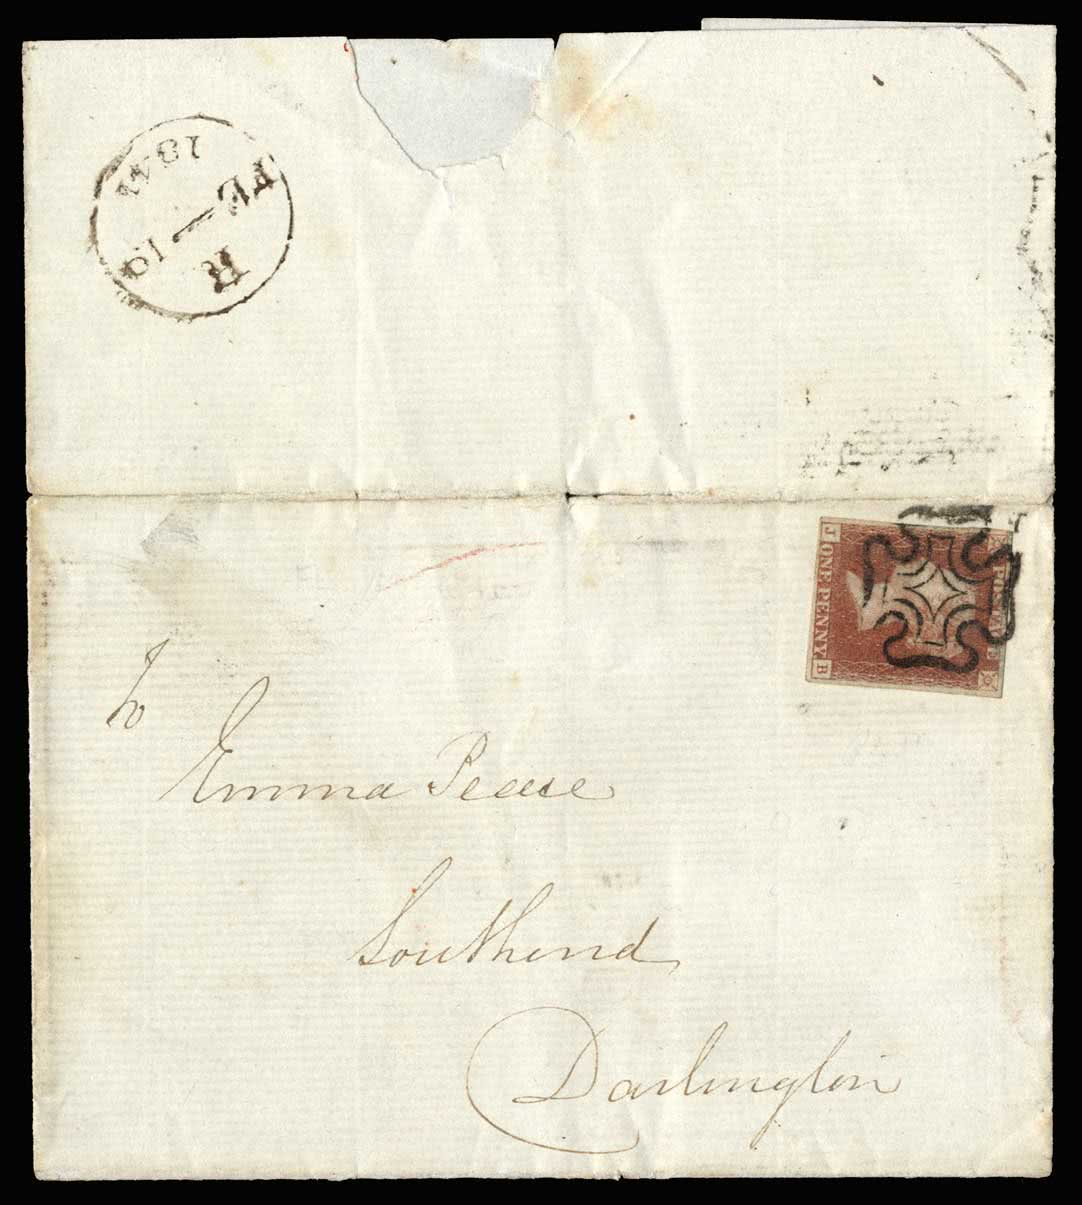 R
FE
19
1841
POSTAGE
ONE PENNY
J B
To
Emma Pease
Southend
Darlington